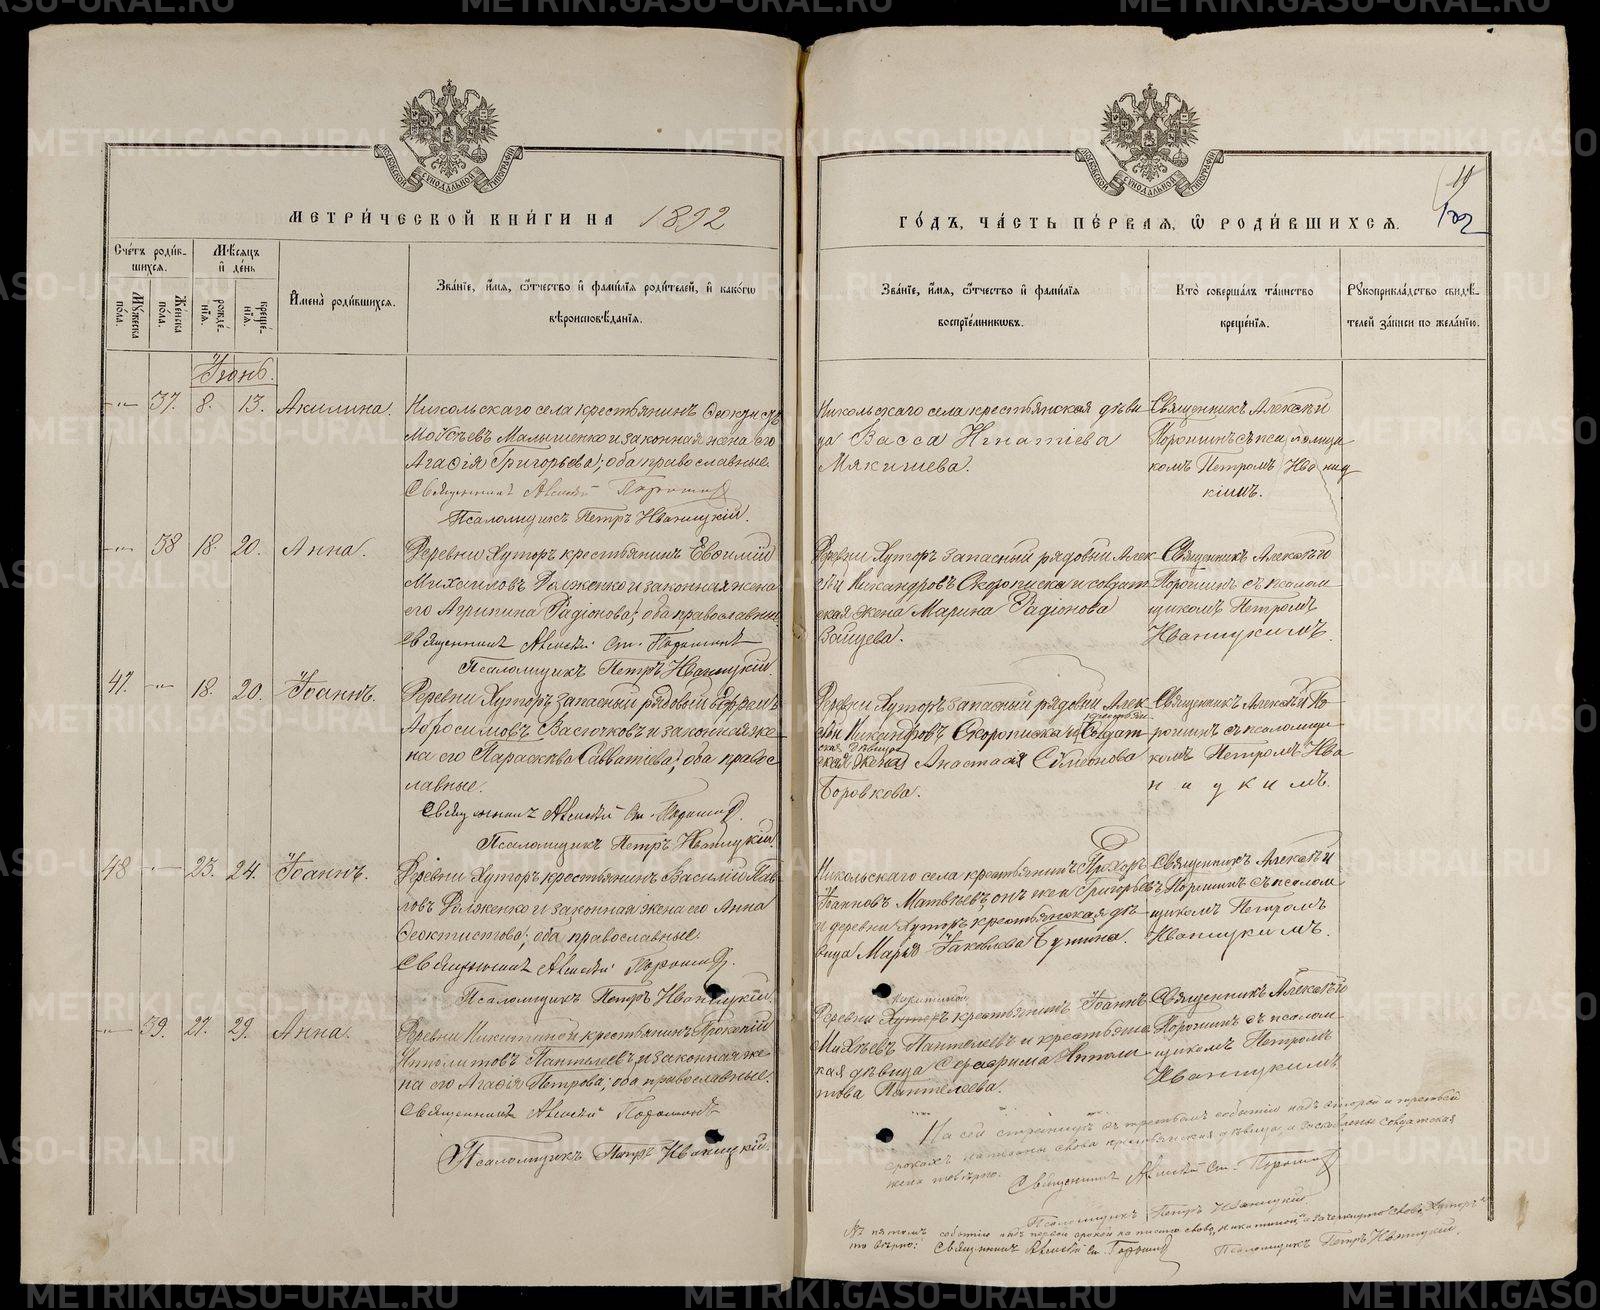 МЕТРИ́ЧЕСКОЙ КНИ́ГИ НА 1892
ГО́ДЪ, ЧА́СТЬ ПЕ́РВАЯ, Ѡ РОДИ́ВШИХСЯ.
Счётъ роди́в-
шихся.
Му́жеска по́ла.
Же́нска по́ла.
Мѣ́сяцъ
и́ де́нь
рожде́-
нія.
креще́-
нія.
И́мена̀ роди́вшихся.
Зва́ніе, и́мя, ѻ́тчество и́ фами́лія роди́телей, и́ како́гѡ
вѣроисповѣ́данія.
Зва́ніе, и́мя, ѻ́тчество и́ фами́лія
воспріе́мникѡвъ.
Кто̀ соверша́лъ та́инство
креще́нія.
Рꙋкоприкла́дство свидѣ́-
телей за́писи по жела́нію.
Іюнь.
37. 8. 13. Акилина.
Никольскаго села крестьянинъ
Малышенко и законная жена его
Агафія Григорьева; оба православные.
Священникъ Алексѣй Порошин
Псаломщикъ Петръ Иваницкій.
Никольскаго села крестьянская дѣви-
ца Васса Игнатіева
Мякишева.
Священникъ Алексѣй
Порошинъ съ псаломщи-
комъ Петромъ Иваниц-
кимъ.
38 18. 20. Анна.
Деревни Хуторъ крестьянинъ Евфимій
Михаиловъ и законная жена
его Агрипина Радіонова; оба православные.
Священникъ Алексѣй Порошинъ
Псаломщикъ Петръ Иваницкій.
Деревни Хуторъ запасный рядовый Алек-
сѣй Никандровъ Скорописка и солдат-
ская жена Марина Радіонова
Зайцева.
Священникъ Алексѣй
Порошинъ съ псалом-
щикомъ Петромъ
Иваницкимъ.
47. 18. 20. Іоаннъ.
Деревни Хуторъ запасный рядовый Ефремъ
Абросимовъ Васючковъ и законная же-
на его Параскева Савватіева; оба правос-
лавные.
Священникъ Алексѣй Порошин
Псаломщикъ Петръ Иваницкій.
Деревни Хуторъ запасный рядовый Алек-
сѣй Никандровъ Скорописка и солдат-
крестьян-
ская дѣвица
ская жена Анастасія Симеонова
Боровкова.
Священникъ Алексѣй По-
рошинъ съ псаломщи-
комъ Петромъ Ива-
ницкимъ.
48 23. 24. Іоаннъ.
Деревни Хуторъ крестьянинъ Василій Пав-
ловъ и законная жена его Анна
Феоктистова; оба православные.
Священникъ Алексѣй Порошин.
Псаломщикъ Петръ Иваницкій.
Никольскаго села крестьянинъ Прохоръ
Іоанновъ
и деревни Хуторъ крестьянская дѣ-
вица Марья Іаковлева Бутина.
Священникъ Алексѣй
Порошинъ съ псалом-
щикомъ Петромъ
Иваницкимъ.
39. 27. 29. Анна.
Деревни Никитиной крестьянинъ Прокопій
Ипполитовъ Пантелеевъ и законная же-
на его Агафія Петрова; оба православные.
Священникъ Алексѣй Порошинъ
Псаломщикъ Петръ Иваницкій.
Никитиной
Деревни Хуторъ крестьянинъ Іоаннъ
Михѣевъ Пантелеевъ и крестьянс-
кая дѣвица Серафима Ипполи-
това Пантелеева.
Священникъ Алексѣй
Порошинъ съ псалом-
щикомъ Петромъ
Иваницкимъ
На сей страницѣ въ третьемъ событіи надъ второй и третьей
строкахъ написаны слова крестьянская дѣвица, а солдатская
жена то вѣрно. Священникъ Алексѣй Порошин
Псаломщикъ Петръ Иваницкій
Въ пятомъ событіи надъ первой строкой написано слово „Никитиной", а зачеркнуто слово „Хуторъ"
то вѣрно: Священникъ Алексѣй Порошин Псаломщикъ Петръ Иваницкій.
METRIKI.GASO-URAL.RU